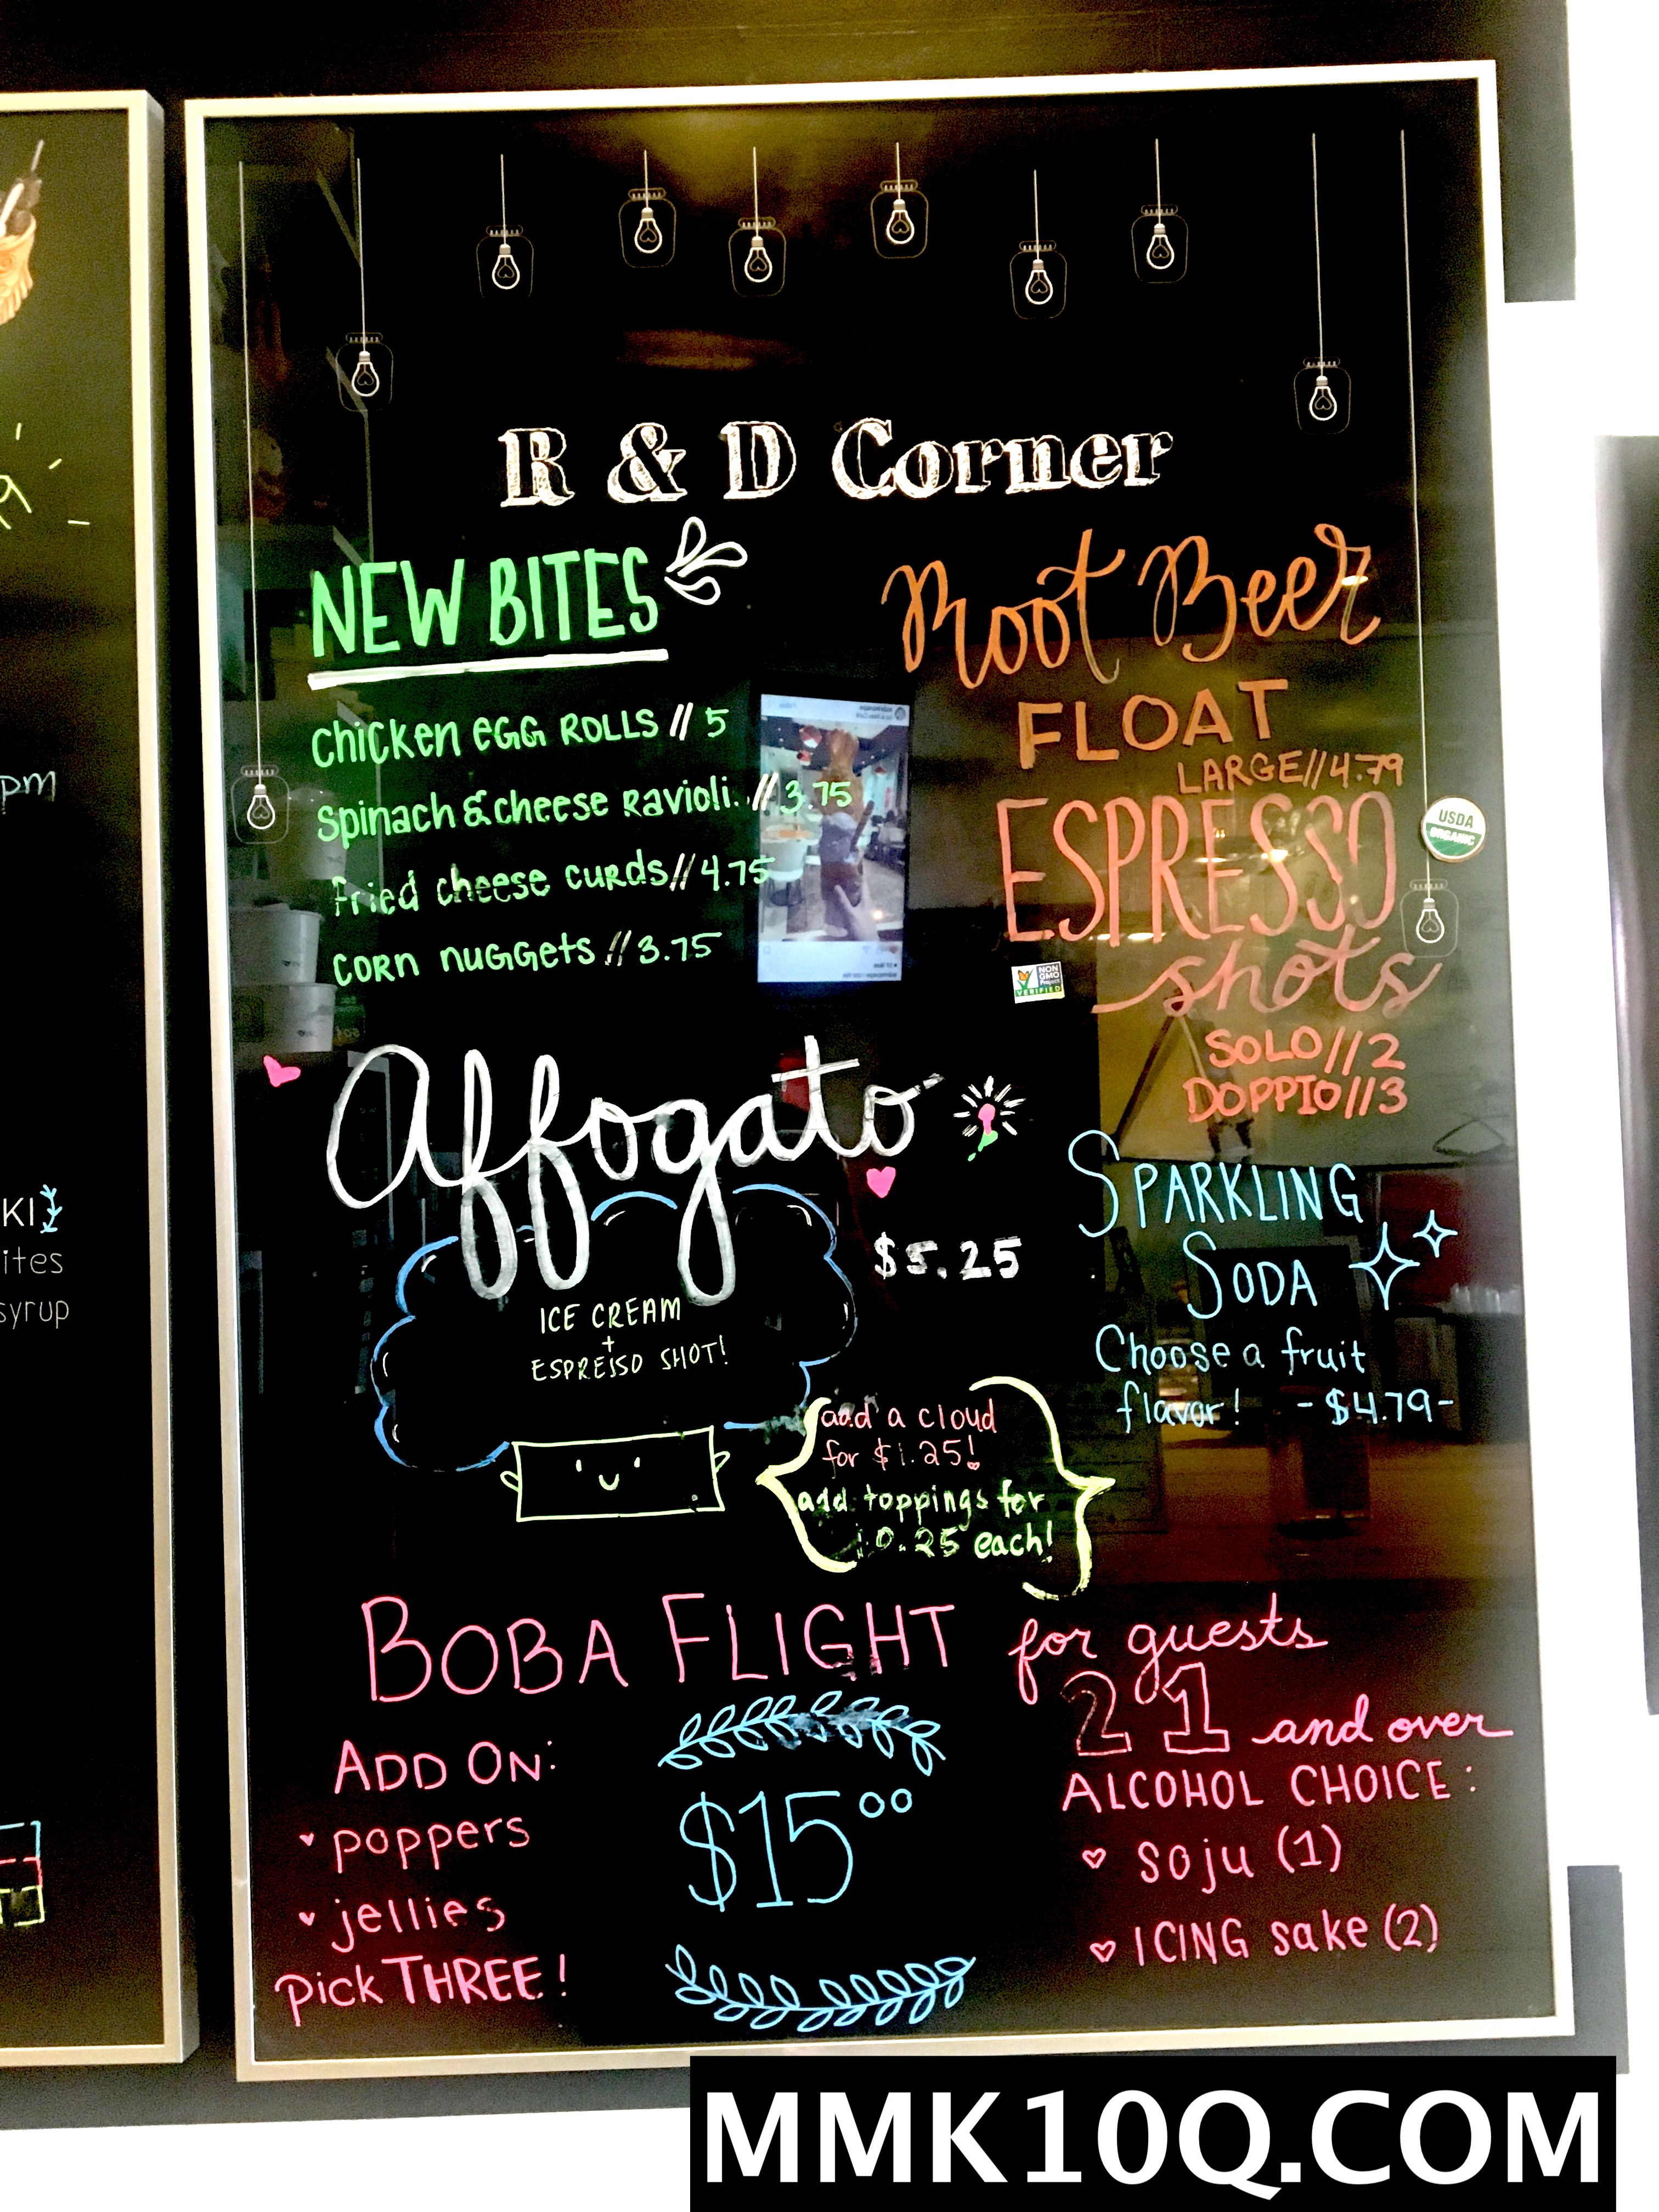 R & D Corner
NEW BITES
chicken EGG ROLLS // 5
spinach & cheese Ravioli. // 3.75
fried cheese curds // 4.75
corn nuggets // 3.75
Root Beer
FLOAT
LARGE // 4.79
ESPRESSO
shots
SOLO // 2
DOPPIO // 3
USDA
ORGANIC
NON
GMO
Project
VERIFIED
Affogato
$5.25
ICE CREAM
+
ESPRESSO SHOT!
add a cloud
for $1.25!
add toppings for
0.25 each!
SPARKLING
SODA
Choose a fruit
flavor! -$4.79-
BOBA FLIGHT
ADD ON:
poppers
jellies
pick THREE!
$15⁰⁰
for guests
21 and over
ALCOHOL CHOICE:
soju (1)
ICING sake (2)
pm
KI
ites
syrup
MMK10Q.COM